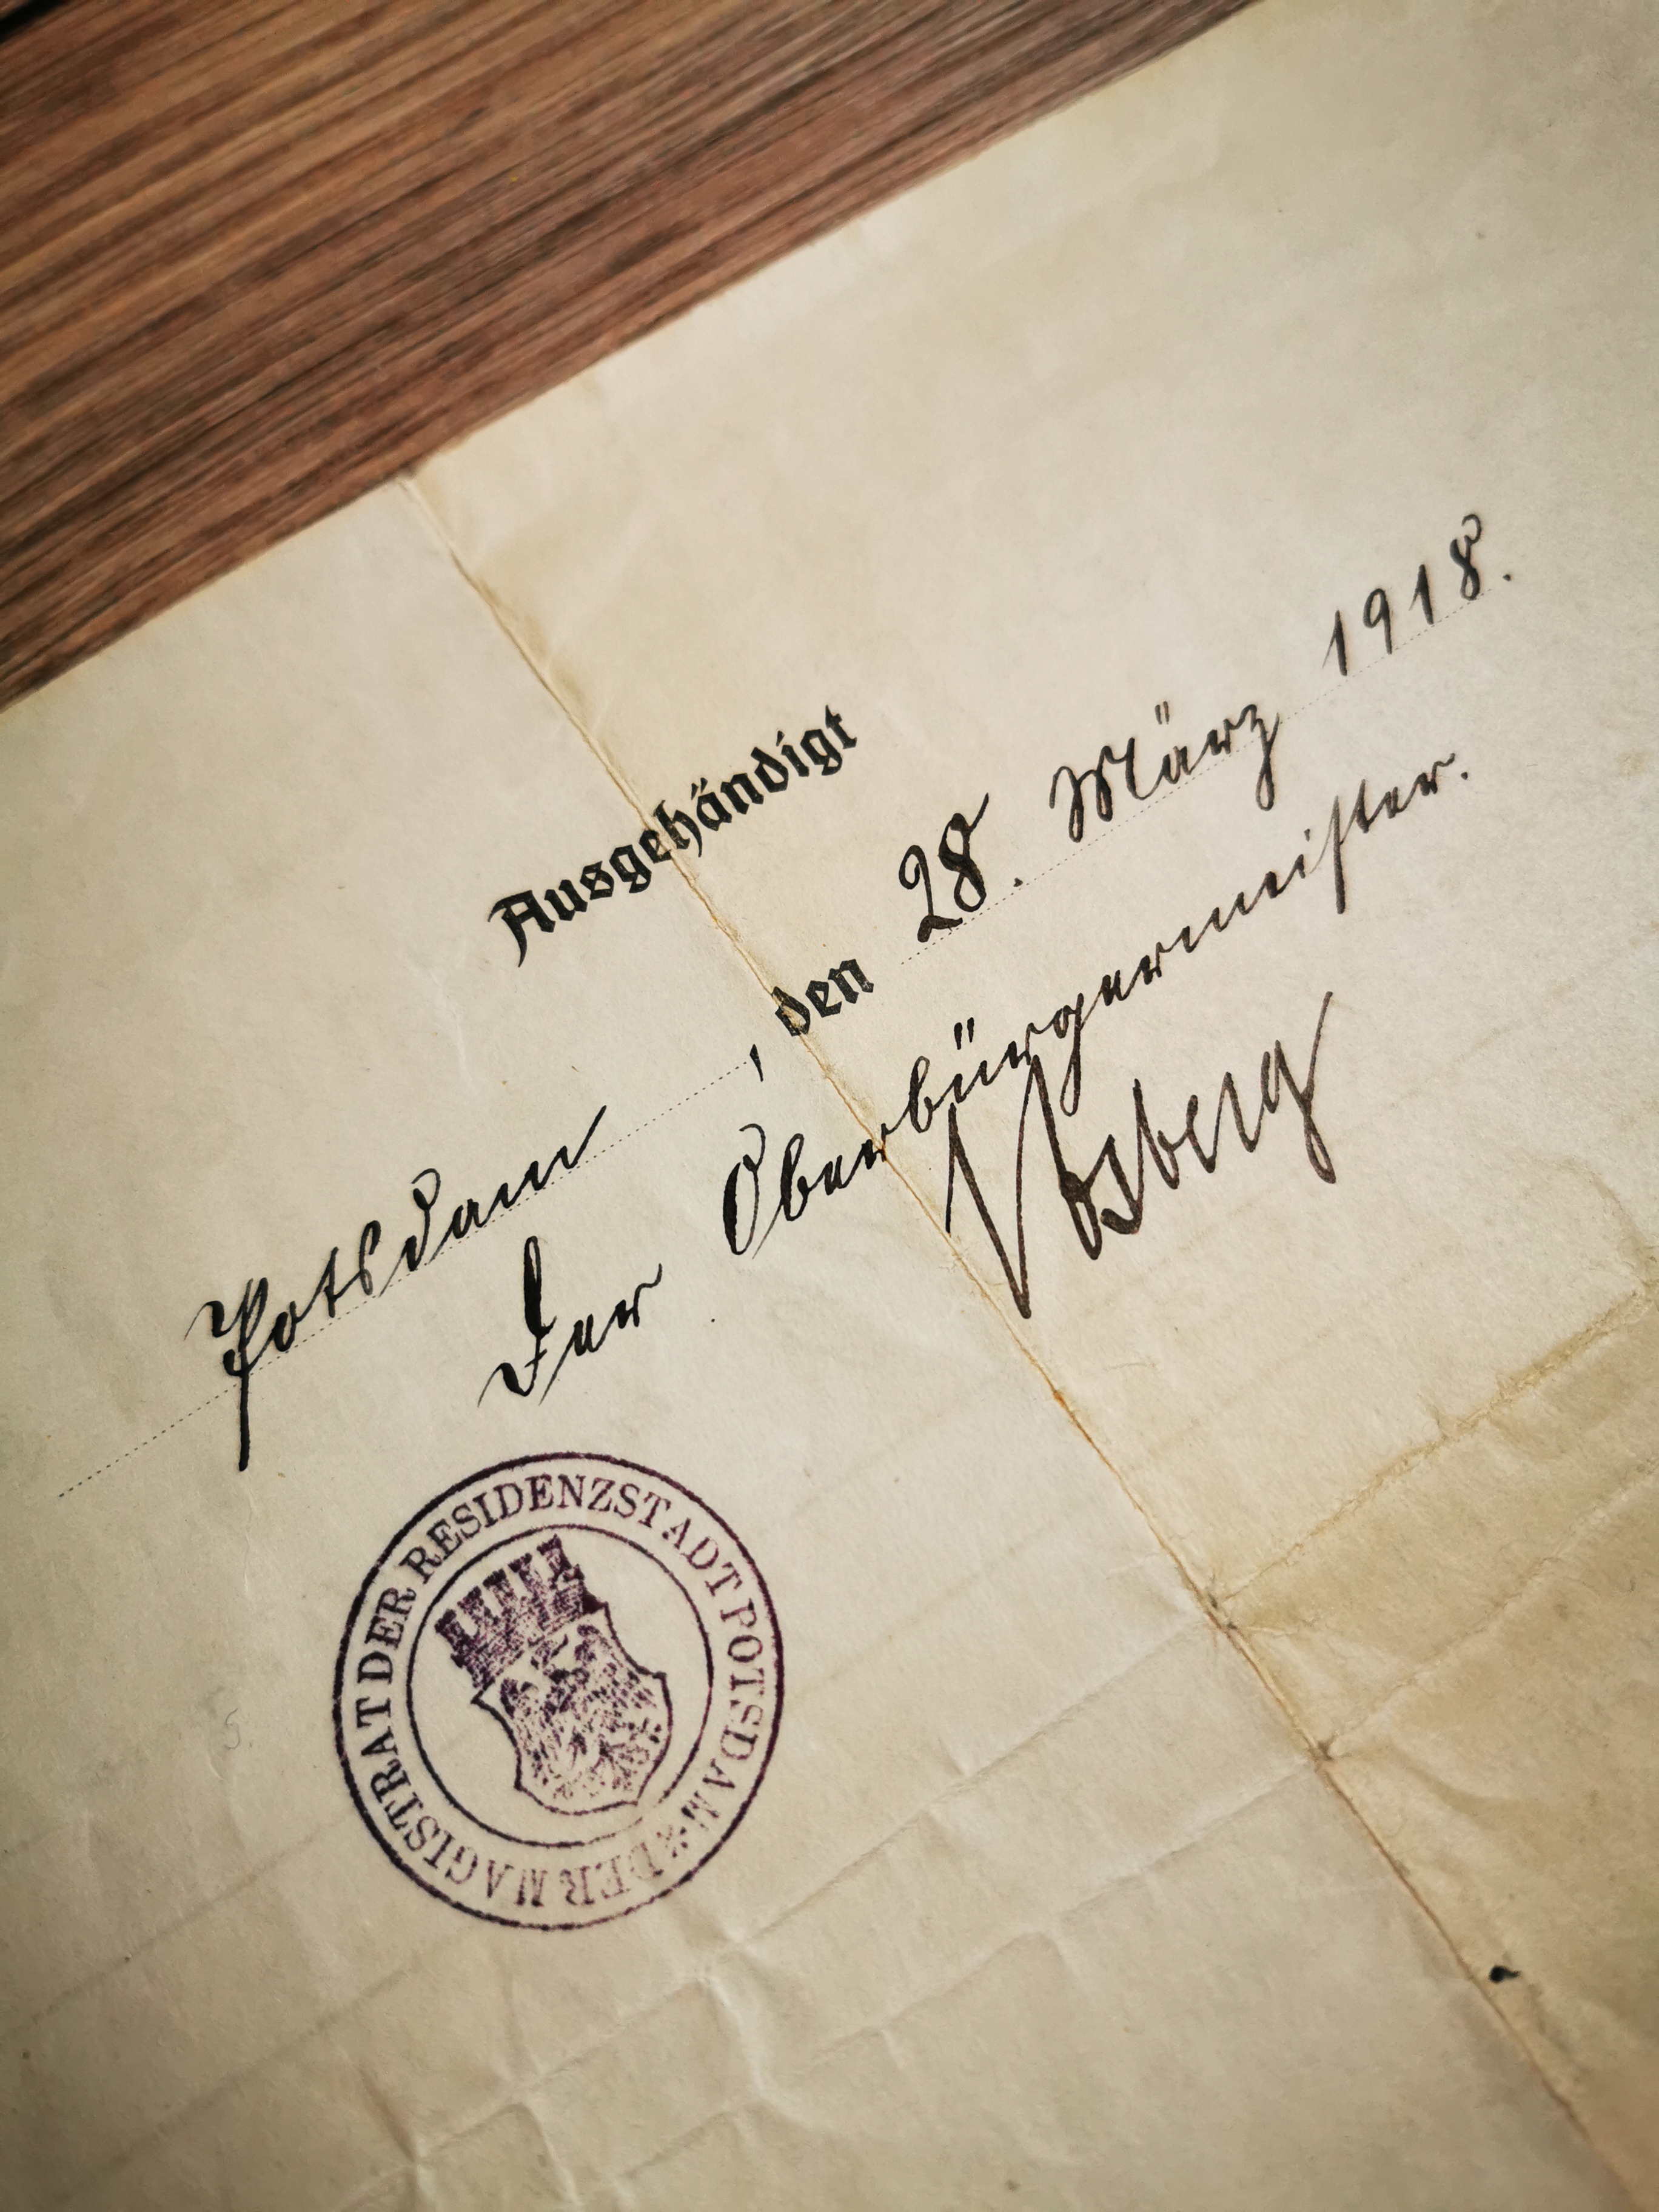 Ausgehändigt
Potsdam, den 28. März 1918.
Der Oberbürgermeister.
Vosberg
DER MAGISTRAT DER RESIDENZSTADT POTSDAM *